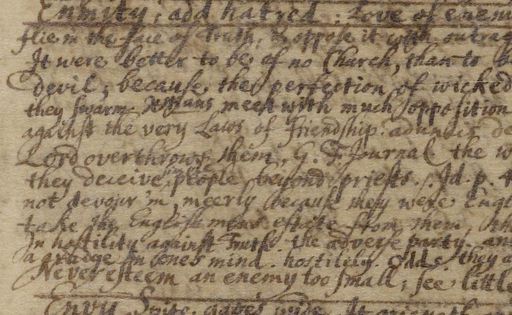 Enmity; add hatred: Love of enem
flie in the face of Truth, & oppose it with outrag
It were better to be of no Church, than to b
devil; because the perfection of wicked
they swarm. Xtians meet with much opposition
against the very Laws of friendship: adv de
Lord overthrows them, G. F. Journal the w
they deceive people beyond priests. Id. p. 4
not devour 'm, meerly because they were Engl
take the English mens estate from them, th
In hostility against truth: the adverse party. an
a grudge in ones mind. hostility. Odds. they a
Never esteem an enemy too small; see little
Envy Spite. gapes wide. It